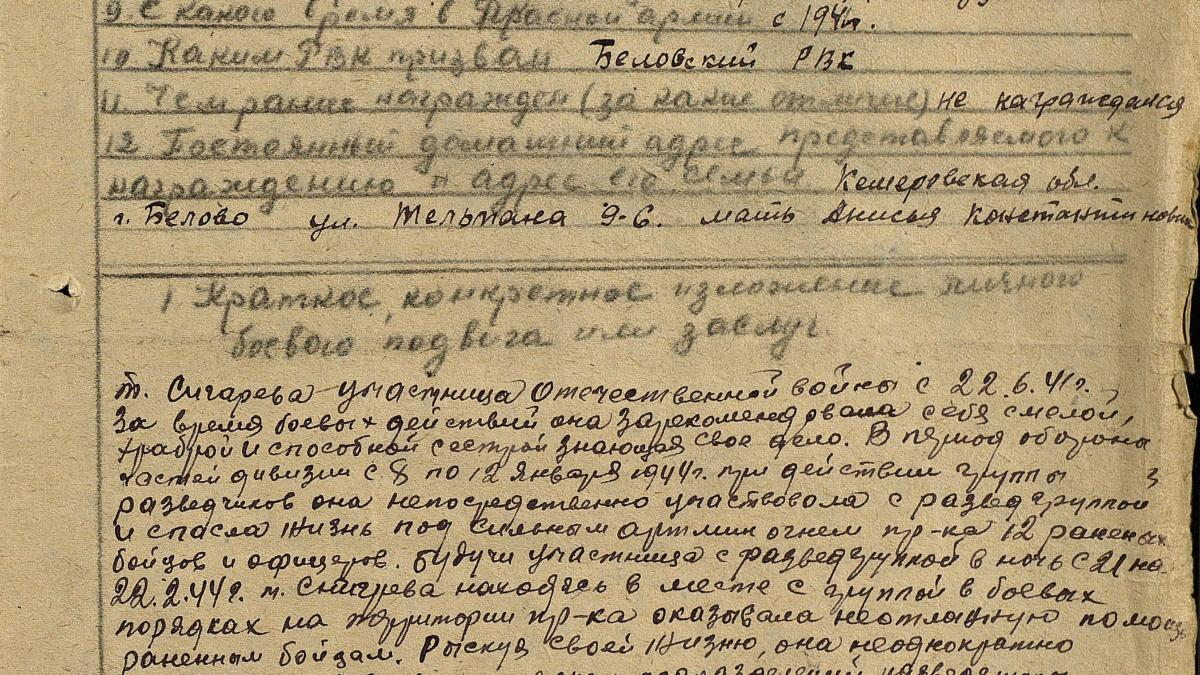 9 С какого время в Красной армии с 1941г.
10 Каким РВК призван Беловский РВК
11. Чем ранее награжден (за какие отличие) не награждался
12 Постоянный домашний адрес представляемого к
награждению и адрес его семьи Кемеровская обл.
г. Белово ул. Тельмана 9-6. мать Анисья Константинов
1 Краткое, конкретное изложение личного
боевого подвига или заслуг.
т. Снигарева участница Отечественной войны с 22.6.41г.
За время боевых действий она зарекомендовала себя смелой,
храброй и способной сестрой знающая свое дело. В период обороны
частей дивизии с 8 по 12 января 1944г. при действии группы
разведчиков она непосредственно участвовала с разведгруппой
и спасла жизнь под сильным артмин огнем пр-ка 12 раненых
бойцов и офицеров. Будучи участница с разведгруппой в ночь с 21 на
22.2.44г. т. Снигрева находясь в месте с группой в боевых
порядках на территории пр-ка оказывала неотложную помощь
раненным бойцам. Рыскуя своей жизню, она неоднократно